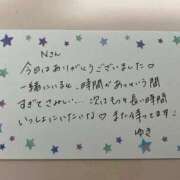 Nさん
今日はありがとうございました♡
一緒にいると時間があっという間
すぎてさみしい…次はもっと長い時間
いっしょにいたいな♡また待ってます!
ゆき